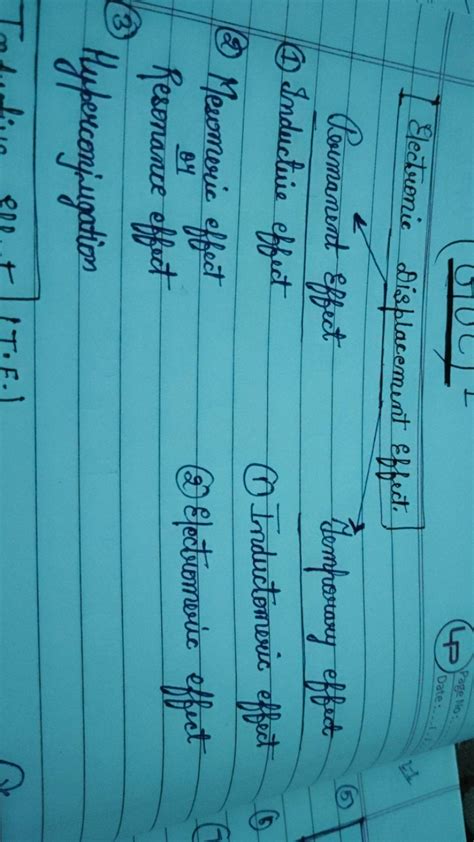 GOC, I
Page No.:
Date:
Electronic Displacement Effect.
Permanent Effect
Temporary effect
① Inductive effect
① Inductomeric effect
② Mesomeric effect
or
Resonance effect
② Electromeric effect
③ Hyperconjugation
Inductive Effect (I.E.)
⑤
⑥